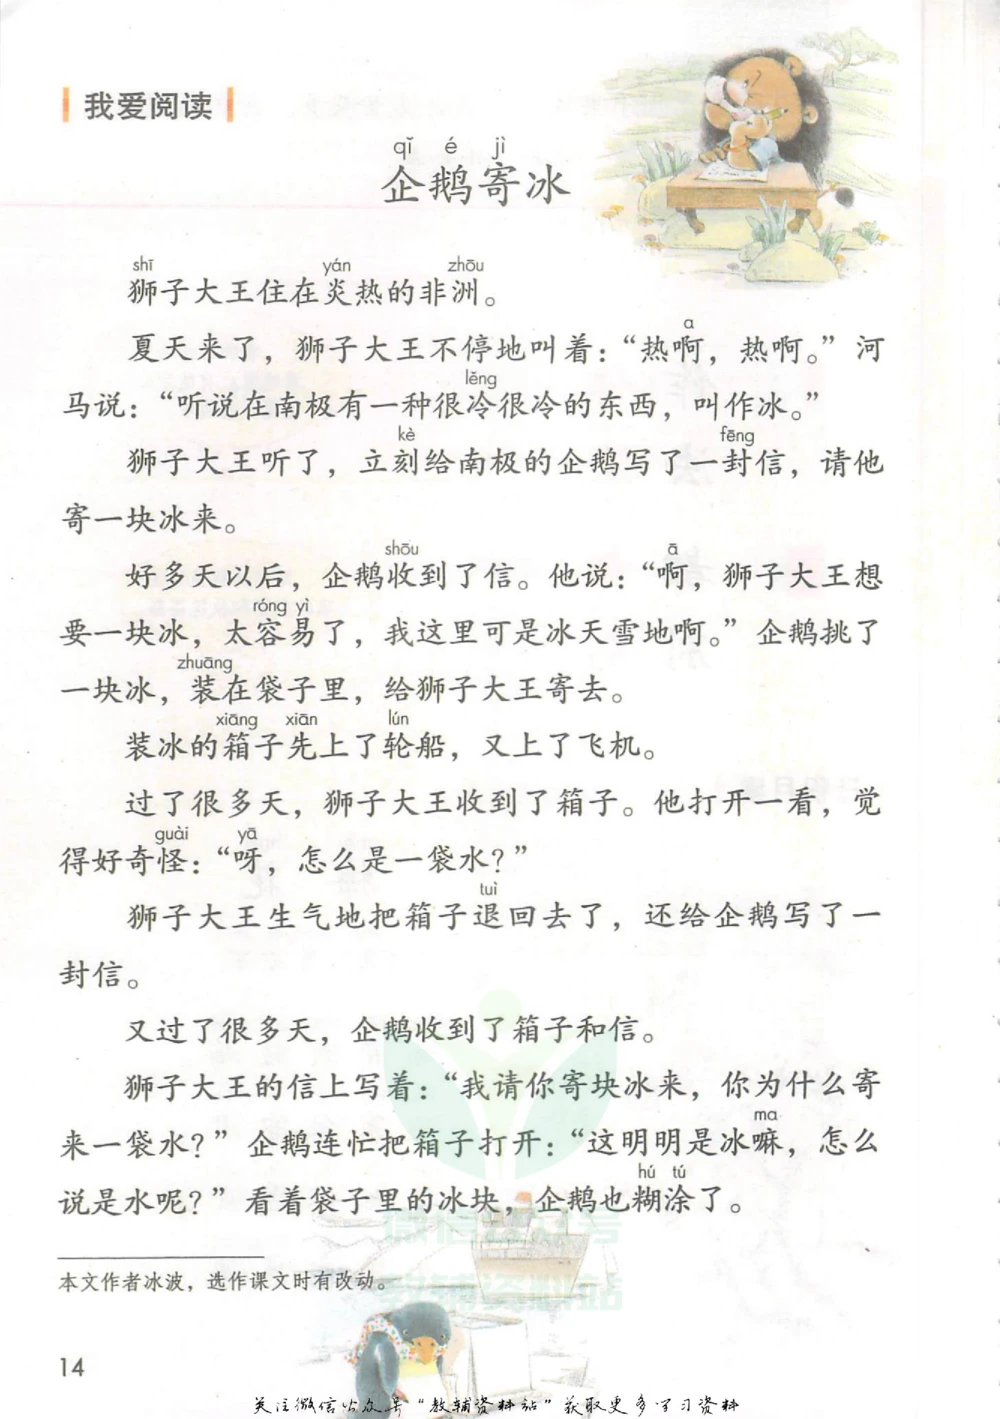 我爱阅读
qǐ é jì
企鹅寄冰
shī yán zhōu
狮子大王住在炎热的非洲。
a
夏天来了，狮子大王不停地叫着：“热啊，热啊。”河
lěng
马说：“听说在南极有一种很冷很冷的东西，叫作冰。”
kè fēng
狮子大王听了，立刻给南极的企鹅写了一封信，请他
寄一块冰来。
shōu ā
好多天以后，企鹅收到了信。他说：“啊，狮子大王想
róng yì
要一块冰，太容易了，我这里可是冰天雪地啊。”企鹅挑了
zhuāng
一块冰，装在袋子里，给狮子大王寄去。
xiāng xiān lún
装冰的箱子先上了轮船，又上了飞机。
过了很多天，狮子大王收到了箱子。他打开一看，觉
guài yā
得好奇怪：“呀，怎么是一袋水？”
tuì
狮子大王生气地把箱子退回去了，还给企鹅写了一
封信。
又过了很多天，企鹅收到了箱子和信。
狮子大王的信上写着：“我请你寄块冰来，你为什么寄
ma
来一袋水？”企鹅连忙把箱子打开：“这明明是冰嘛，怎么
hú tú
说是水呢？”看着袋子里的冰块，企鹅也糊涂了。
本文作者冰波，选作课文时有改动。
教辅资料站
14
关注微信公众号“教辅资料站”获取更多学习资料